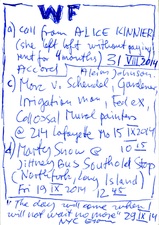 WF
a) Call from ALICE KINNIER
(she left left without paying
rent for 4 months) 31 VIII 2014
Accord
c) Marc v. Schendel, Gardener,
Irrigation man, Fed ex,
Colossal Mural painters
@ 214 Lafayette Mo 15 IX 2014
d) Marty Snow @ 10 15
Jitney Bus Southold Stop
(North Fork, Long Island)
Fri 19 IX 2014 12 45
"The day will come when I
will not wait no more" 29 IX 14
NYC